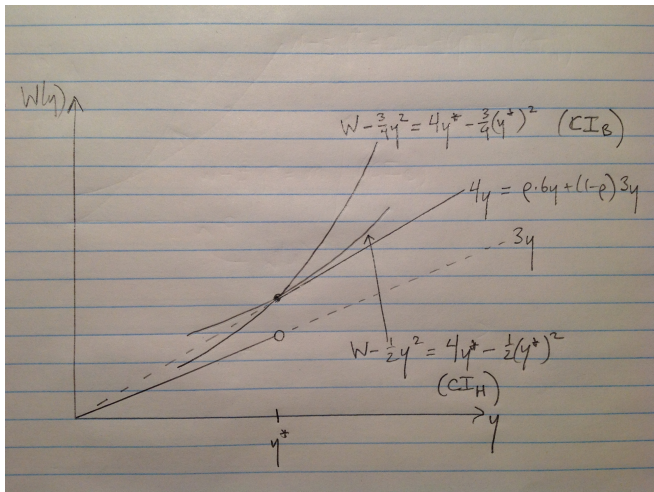 W(y)
W - 3/4 y² = 4y* - 3/4 (y*)² (CI_B)
4y = ρ·6y + (1-ρ)3y
3y
W - 1/2 y² = 4y* - 1/2 (y*)²
(CI_H)
y
y*